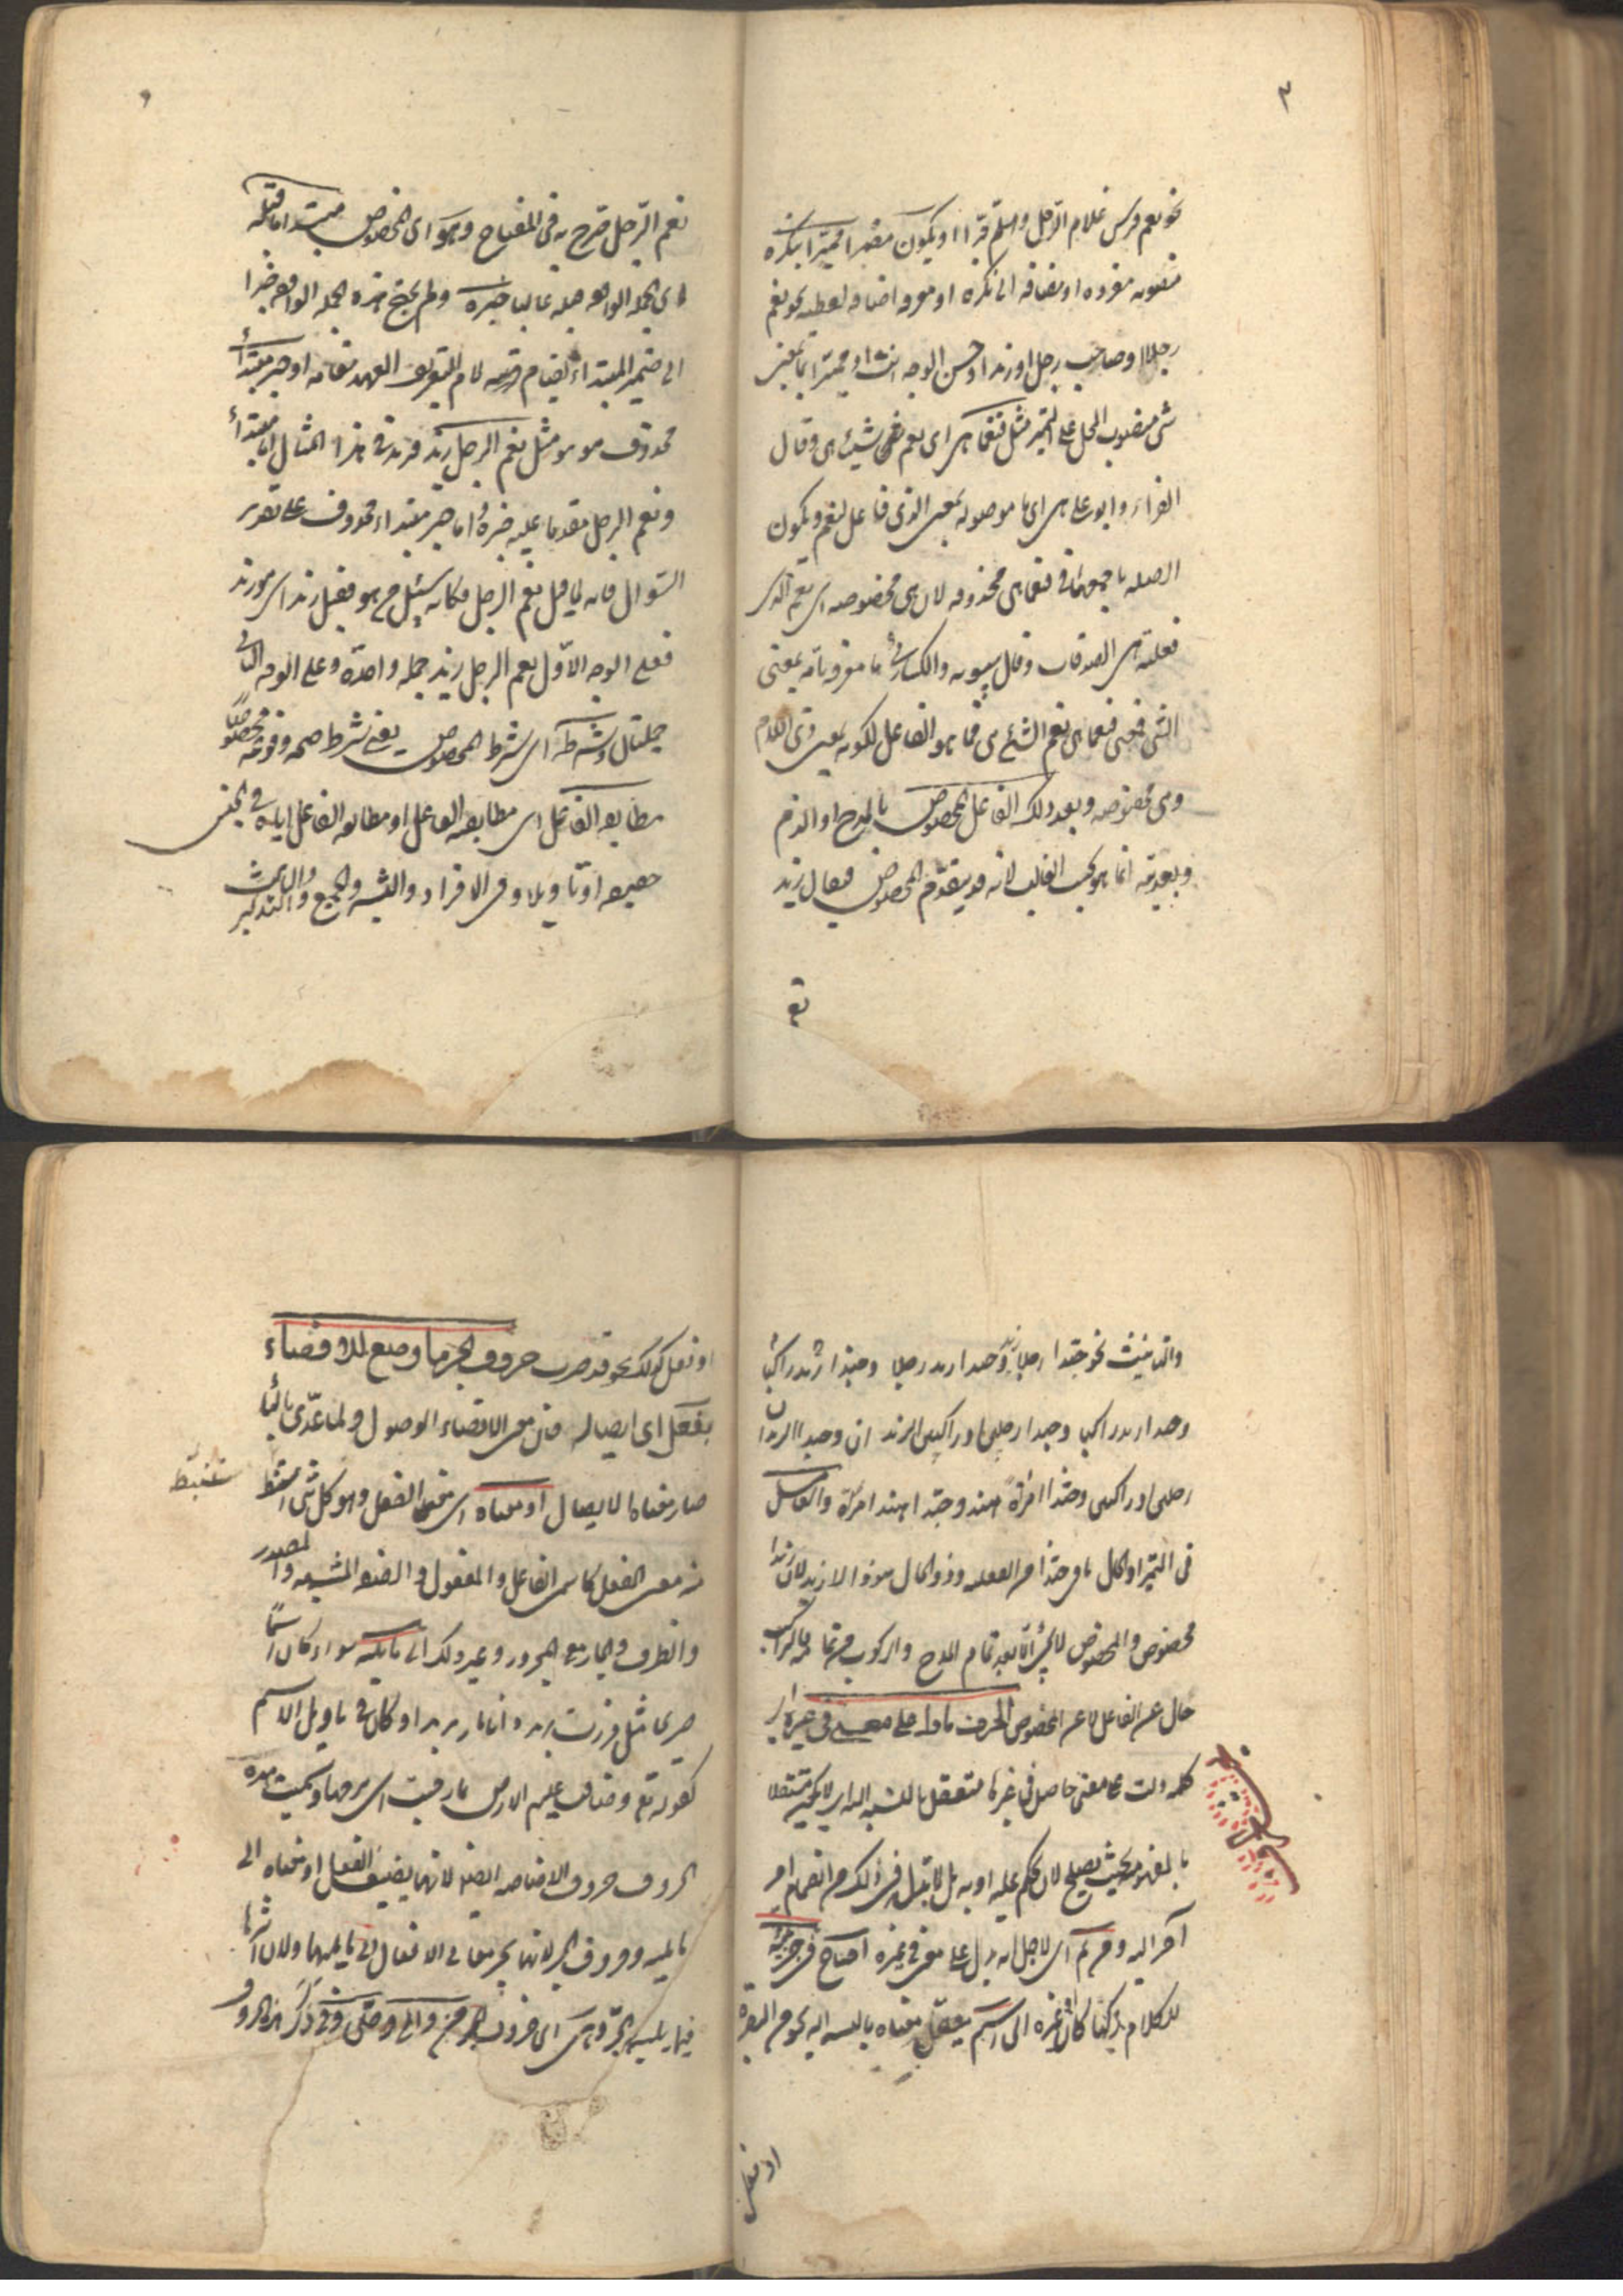 ٣
نحو نعم فرس غلام الرجل وهلم جرا او يكون مضمرا مميزا بنكرة
منصوبة مفردة او مضافة الى نكرة او معرفة اضافة لفظية نحو نعم
رجلا او صاحب رجل او زيد او حسن الوجه انت او مميزا بما بمعنى
شئ منصوب المحل على التميز مثل فنعما هى اى نعم شيئا هى وقال
الفراء وابو على هى اى ما موصولة بمعنى الذى فاعل لنعم ويكون
الصلة باجمعها فى فنعما هى محذوفة لان هى مخصوصة اى نعم الذى
فعلته هى الصدقات وقال سيبويه والكسائى ما معرفة تامة بمعنى
الشئ فمعنى فنعما هى نعم الشئ هى فما هو الفاعل لكونه بمعنى ذى اللام
وهى مخصوصة وبعد ذلك الفاعل المخصوص بالمدح او الذم
وبعديته انما هو بحسب الغالب لانه قد يتقدم المخصوص فيقال زيد
نع
نعم الرجل صرح به فى المفتاح وهو اى المخصوص مبتدا ما قبله
اى الجملة الواقعة قبله غالبا خبره ولم يحتج هذه الجملة الواقعة خبرا
الى ضمير المبتداء لقيام لام التعريف العهد مقامه او خبر مبتداء
محذوف هو مثل نعم الرجل زيد فزيد فى هذا المثال اما مبتداء
ونعم الرجل مقدما عليه خبره او اما خبر مبتداء محذوف على تقدير
السؤال فانه لما قيل نعم الرجل فكانه سئل من هو فقيل زيد اى هو زيد
فعلى الوجه الاول نعم الرجل زيد جملة واحدة وعلى الوجه الثانى
جملتان وشرطه اى شرط المخصوص يعنى شرط صحة وقوعه مخصوصا
مطابقة الفاعل اى مطابقته الفاعل او مطابقة الفاعل اياه فى الجنس
حقيقة او تاويلا وفى الافراد والتثنية والجمع والتذكير والتانيث
والتانيث نحو حبذا رجلا زيد وحبذا زيد رجلا وحبذا زيد راكبا
وحبذا زيد راكبا وحبذا رجلين او راكبين الزيدان وحبذا الزيدان
رجلين او راكبين وحبذا امراة هند وحبذا هند امراة والعامل
فى التميز او الحال ما فى حبذا من الفعلية وذو الحال هو ذا لا زيد لان زيدا
مخصوص والمخصوص لا يجئ الا بعد تمام المدح والركوب من تمامه فالراكب
حال عن الفاعل لا عن المخصوص الحرف ما دل على معنى فى غيره اى
كلمة دلت على معنى حاصل فى غيرها متعقل بالنسبة اليه اى لا يكون مستقلا
بالمفهومية بحيث يصلح لان يحكم عليه او به بل لا بد له فى ذلك من انضمام امر
آخر اليه ومن ثم اى لاجل انه يدل على معنى فى غيره احتاج فى جزئيته
للكلام ركنا كان او غيره الى اسم يتعقل معناه بالنسبة اليه نحو من البصرة
او فعل
او فعل كذلك نحو قد ضرب حروف الجر ما وضع للافضاء
بفعل اى ايصاله فان معنى الافضاء الوصول ولما عدى بالباء
صار معناه الايصال او معناه اى معنى الفعل وهو كل شئ استنبط
مستنبط
منه معنى الفعل كاسمى الفاعل والمفعول والصفة المشبهة والمصدر
والظرف والجار مع المجرور وغير ذلك الى ما يليه سواء كان اسما
صريحا مثل مررت بزيد وانا مار بزيد او كان فى تاويل الاسم
كقوله تع وضاقت عليهم الارض بما رحبت اى برحبها وسميت هذه
الحروف حروف الاضافة ايضا لانها يضيف الفعل او معناه الى
ما يليه وحروف الجر لانها يجر معانى الافعال الى ما يليها ولان اثرها
فيما يليه الجر وهى اى حروف الجر من والى وحتى وفى ذكر هذه الحروف